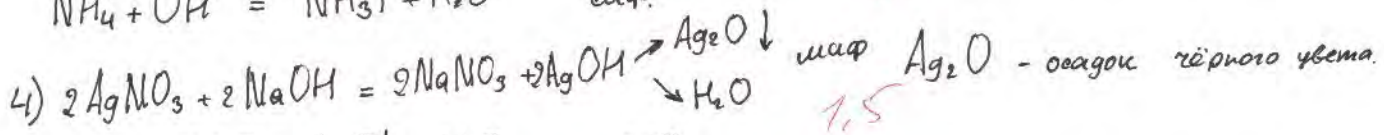 NH₄ + OH = NH₃↑ + H₂O
4) 2 AgNO₃ + 2 NaOH = 2NaNO₃ + 2AgOH ↗ Ag₂O↓ ↘ H₂O маф Ag₂O - осадок чёрного цвета.
1,5